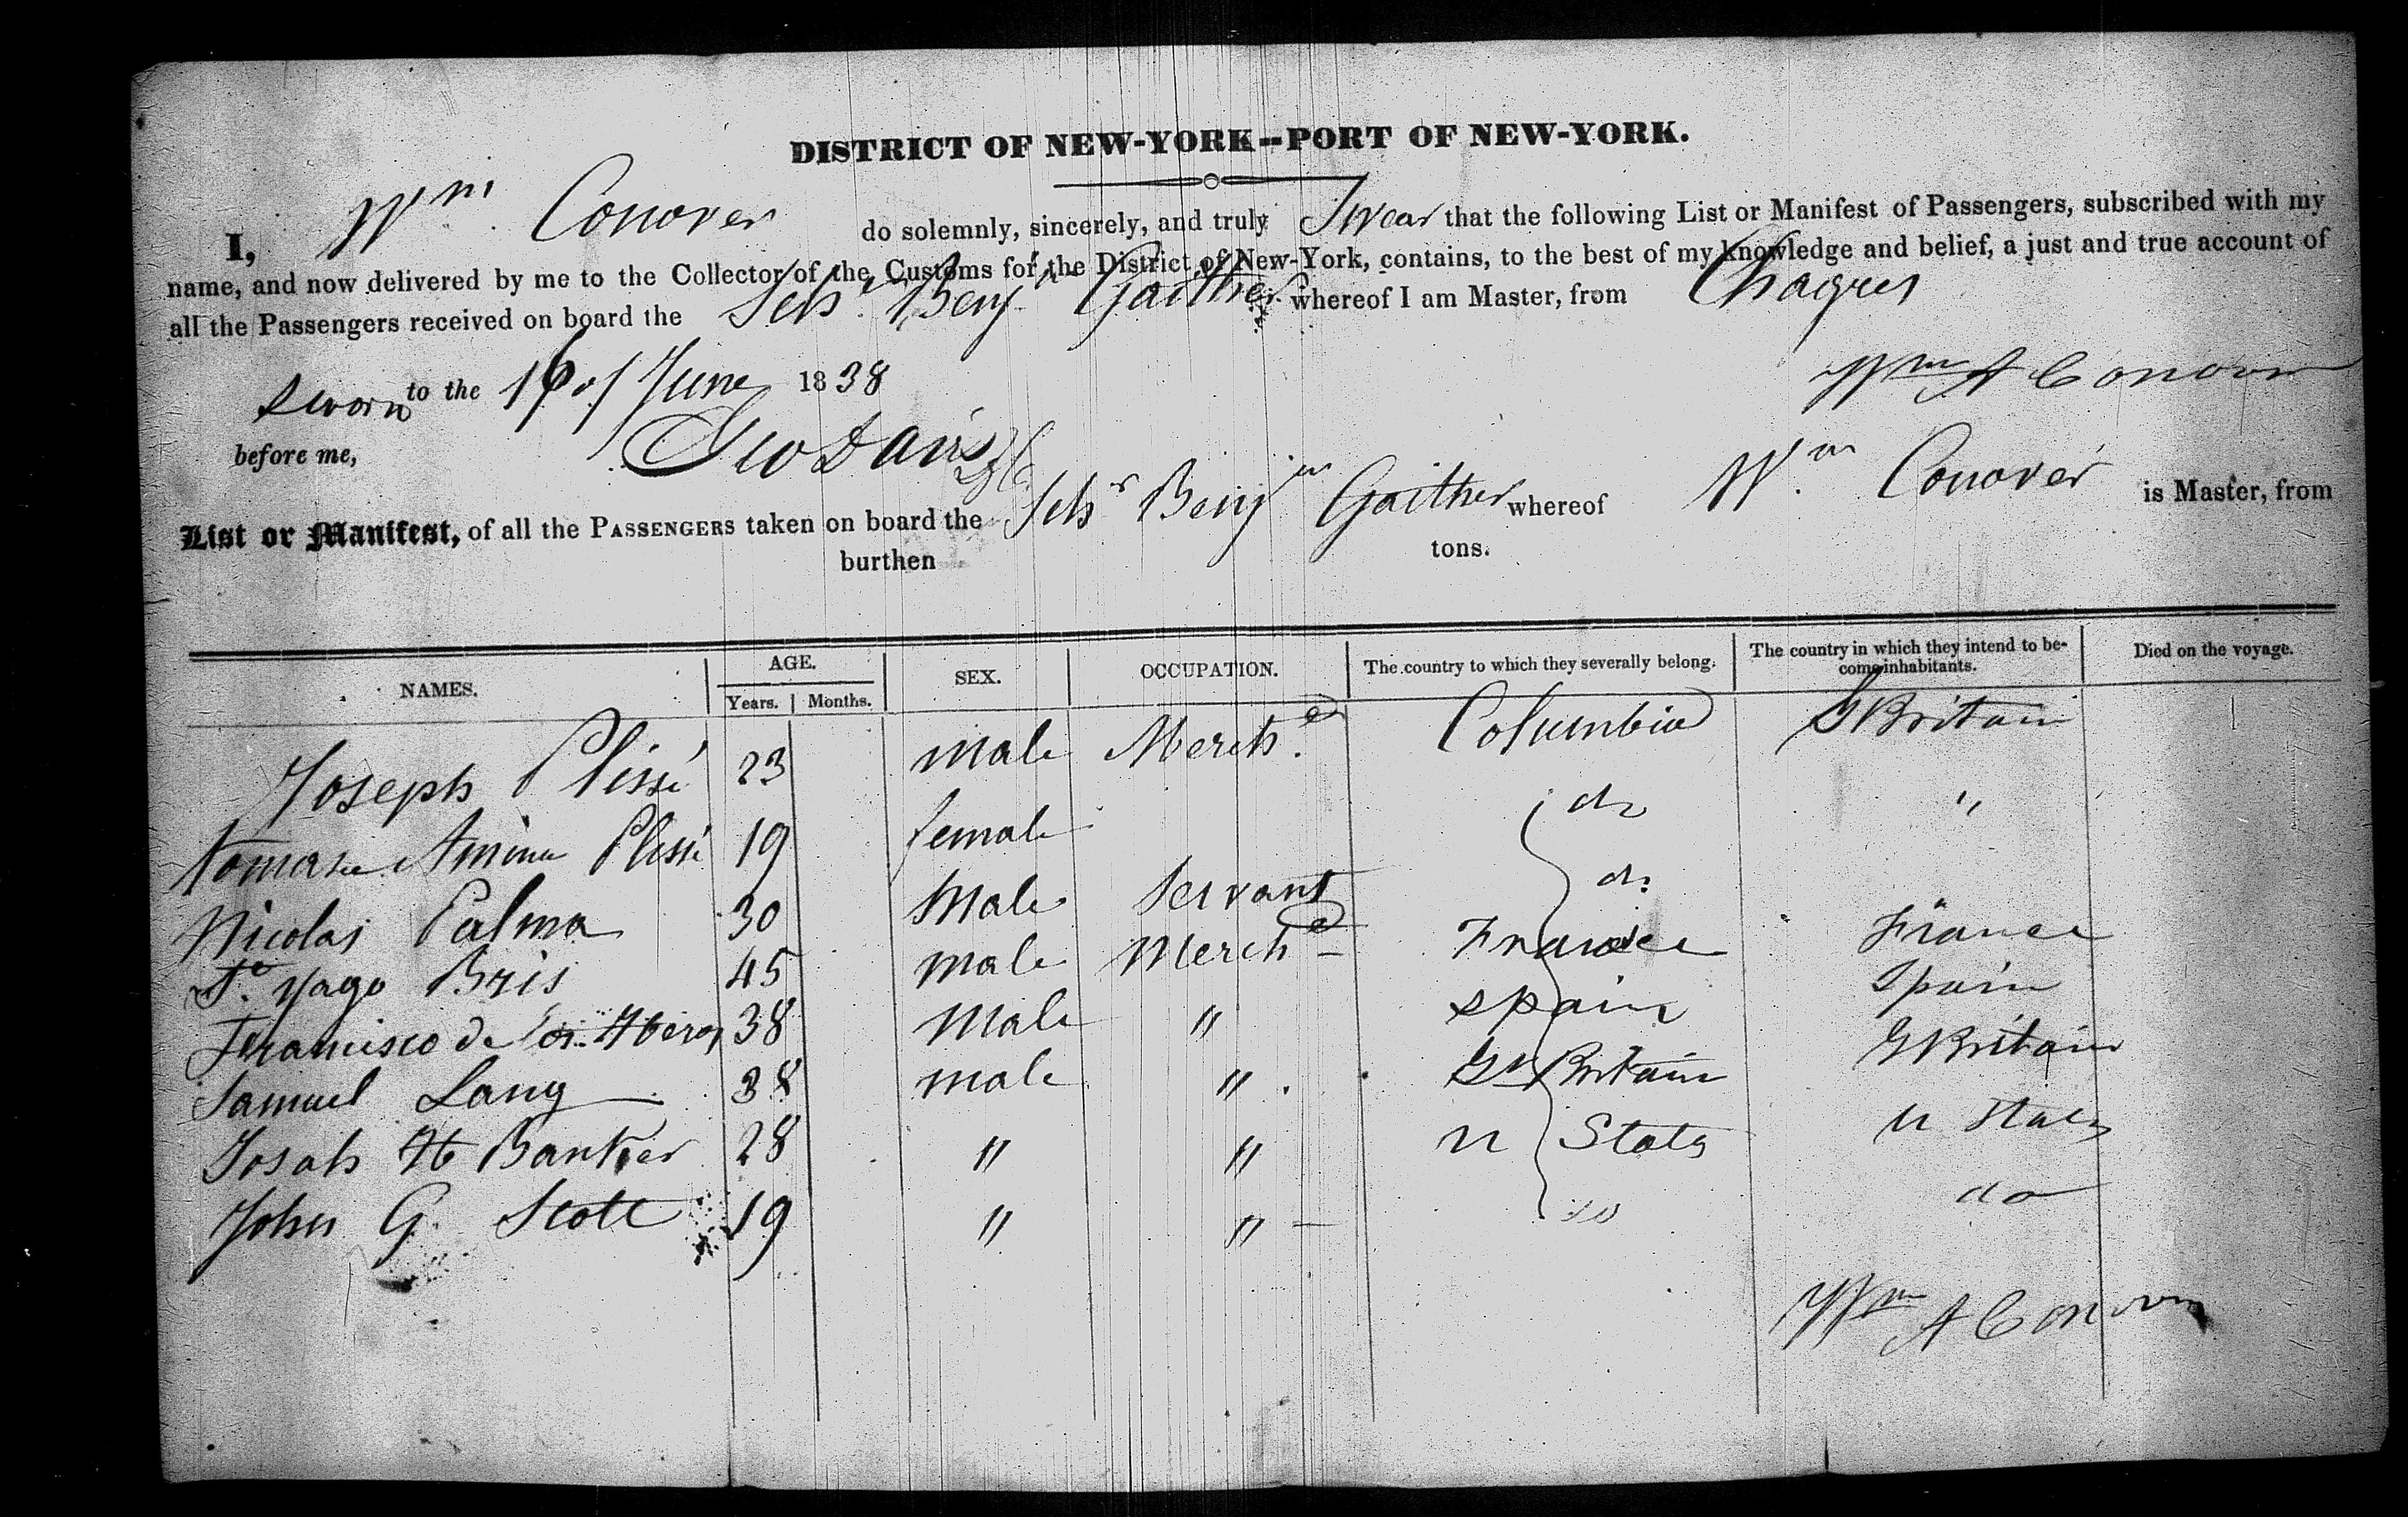 DISTRICT OF NEW-YORK--PORT OF NEW-YORK.
I, Wm Conover do solemnly, sincerely, and truly Swear that the following List or Manifest of Passengers, subscribed with my
name, and now delivered by me to the Collector of the Customs for the District of New-York, contains, to the best of my knowledge and belief, a just and true account of
all the Passengers received on board the Schr Benjn Gaither whereof I am Master, from Chagres
Sworn to the 16 of June 1838 Wm A Conover
before me, Geo Davis
List or Manifest, of all the PASSENGERS taken on board the Schr Benjn Gaither whereof Wm Conover is Master, from
burthen tons.
NAMES. AGE. SEX. OCCUPATION. The country to which they severally belong. The country in which they intend to be-
come inhabitants. Died on the voyage.
Years. Months.
Joseph Plissé 23 male Merch Columbia G Britain
Plissé 19 female do "
Nicolas Palma 30 Male Servant do
Yago Bris 45 male Merch France France
de 38 Male " Spain Spain
Samuel Lang 38 male " Gt Britain G Britain
Josah H Banker 28 " " U States U States
John G. Scott 19 " " do do
Wm A Conover